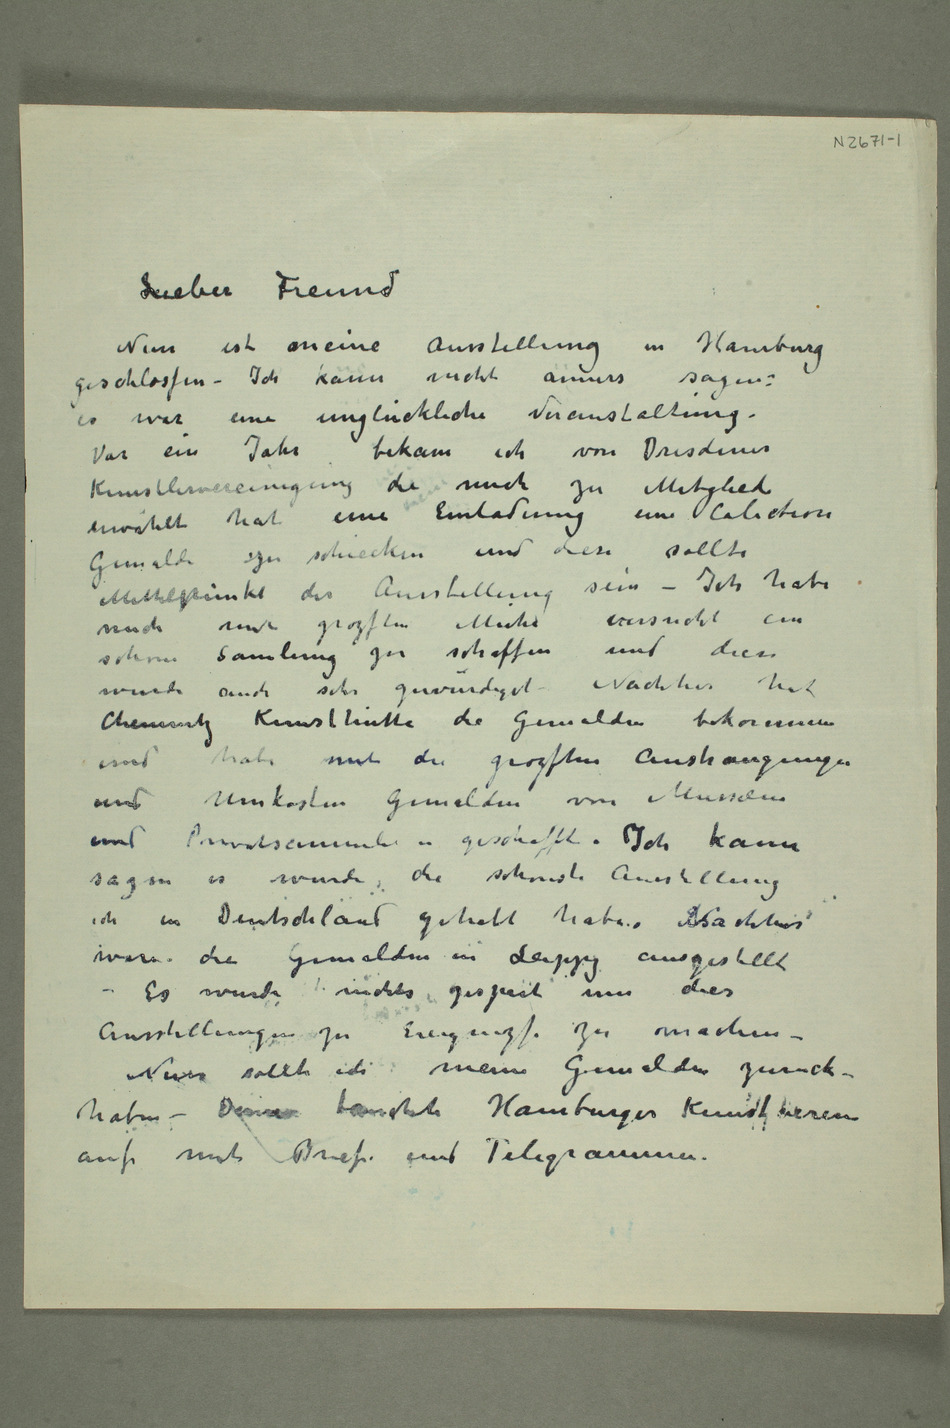 N 2671-1
Lieber Freund
Nun ist meine Ausstellung in Hamburg
geschlossen – Ich kann nicht anners sagen:
es war eine unglückliche Veranstaltung.
Vor ein Jahr bekam ich von Dresdener
Künstlervereinigung die mich zu Mitglied
erwählt hat eine Einladung eine Colection
Gemälde zu schiecken und diese sollte
Mittelpünkt der Ausstellung sein – Ich habe
mich mit grozsten Mühe versucht ein
schöne Samlung zu schaffen und diese
wurde auch sehr gewürdigt – Nachher hat
Chemnitz Kunsthütte die Gemälden bekommen
und habe mit die grozsten Anstrangungen
und Unkosten Gemälden von Musseen
und Privatsammler geschafft. Ich kann
sagen es wurde die schönste Ausstellung
ich in Deutschland gehabt habe. Nachher
ware die Gemälden in Leipzig ausgestellt
– Es wurde nichts gespart um dies
Ausstellungen zu Ereignizse zu machen –
Nun sollte ich meine Gemälden zurück-
haben – tauchte Hamburger Kunstverein
auf mit Briefe und Telegrammen.